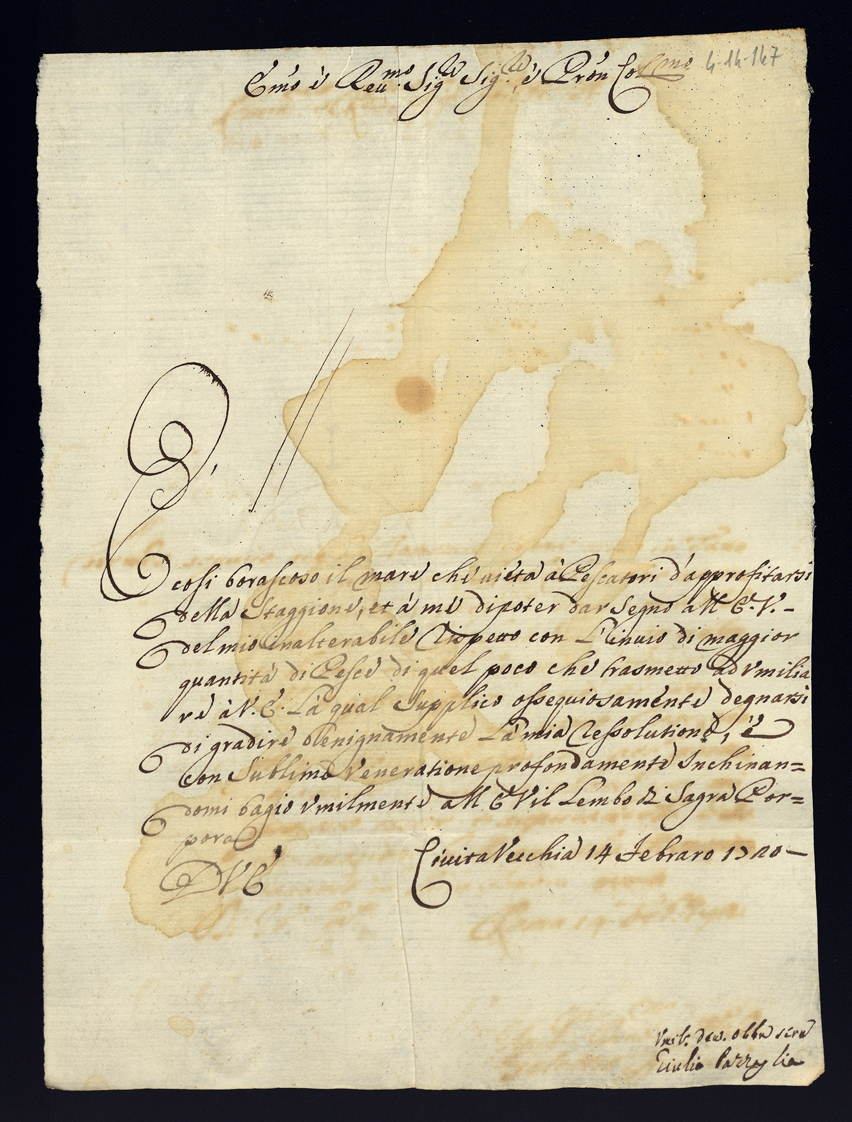 Em̃o è Reu.mo Sig.re Sig.re è Prõn Col.mo
4-14-147
È cosi borascoso il mare chè uieta à Pescatori d'approfitarsi
della Staggione, et à mè di poter dar Segno all E. V. -
del mio inalterabile Rispetto con L'inuio di maggior
quantità di Pescè di quel poco chè trasmetto ad Vmilia
rè à V. E. La qual Supplico ossequiosamente degnarsi
di gradirè benignamente La mia Ressolutione, è
con Sublime Veneratione profondamente Inchinan=
domi bagio Vmilmente all E V il Lembo di Sagra Por=
pora
D V E
Ciuita Vecchia 14 Febraro
Vmil. deu. obbl.
Giulio Pazzaglia